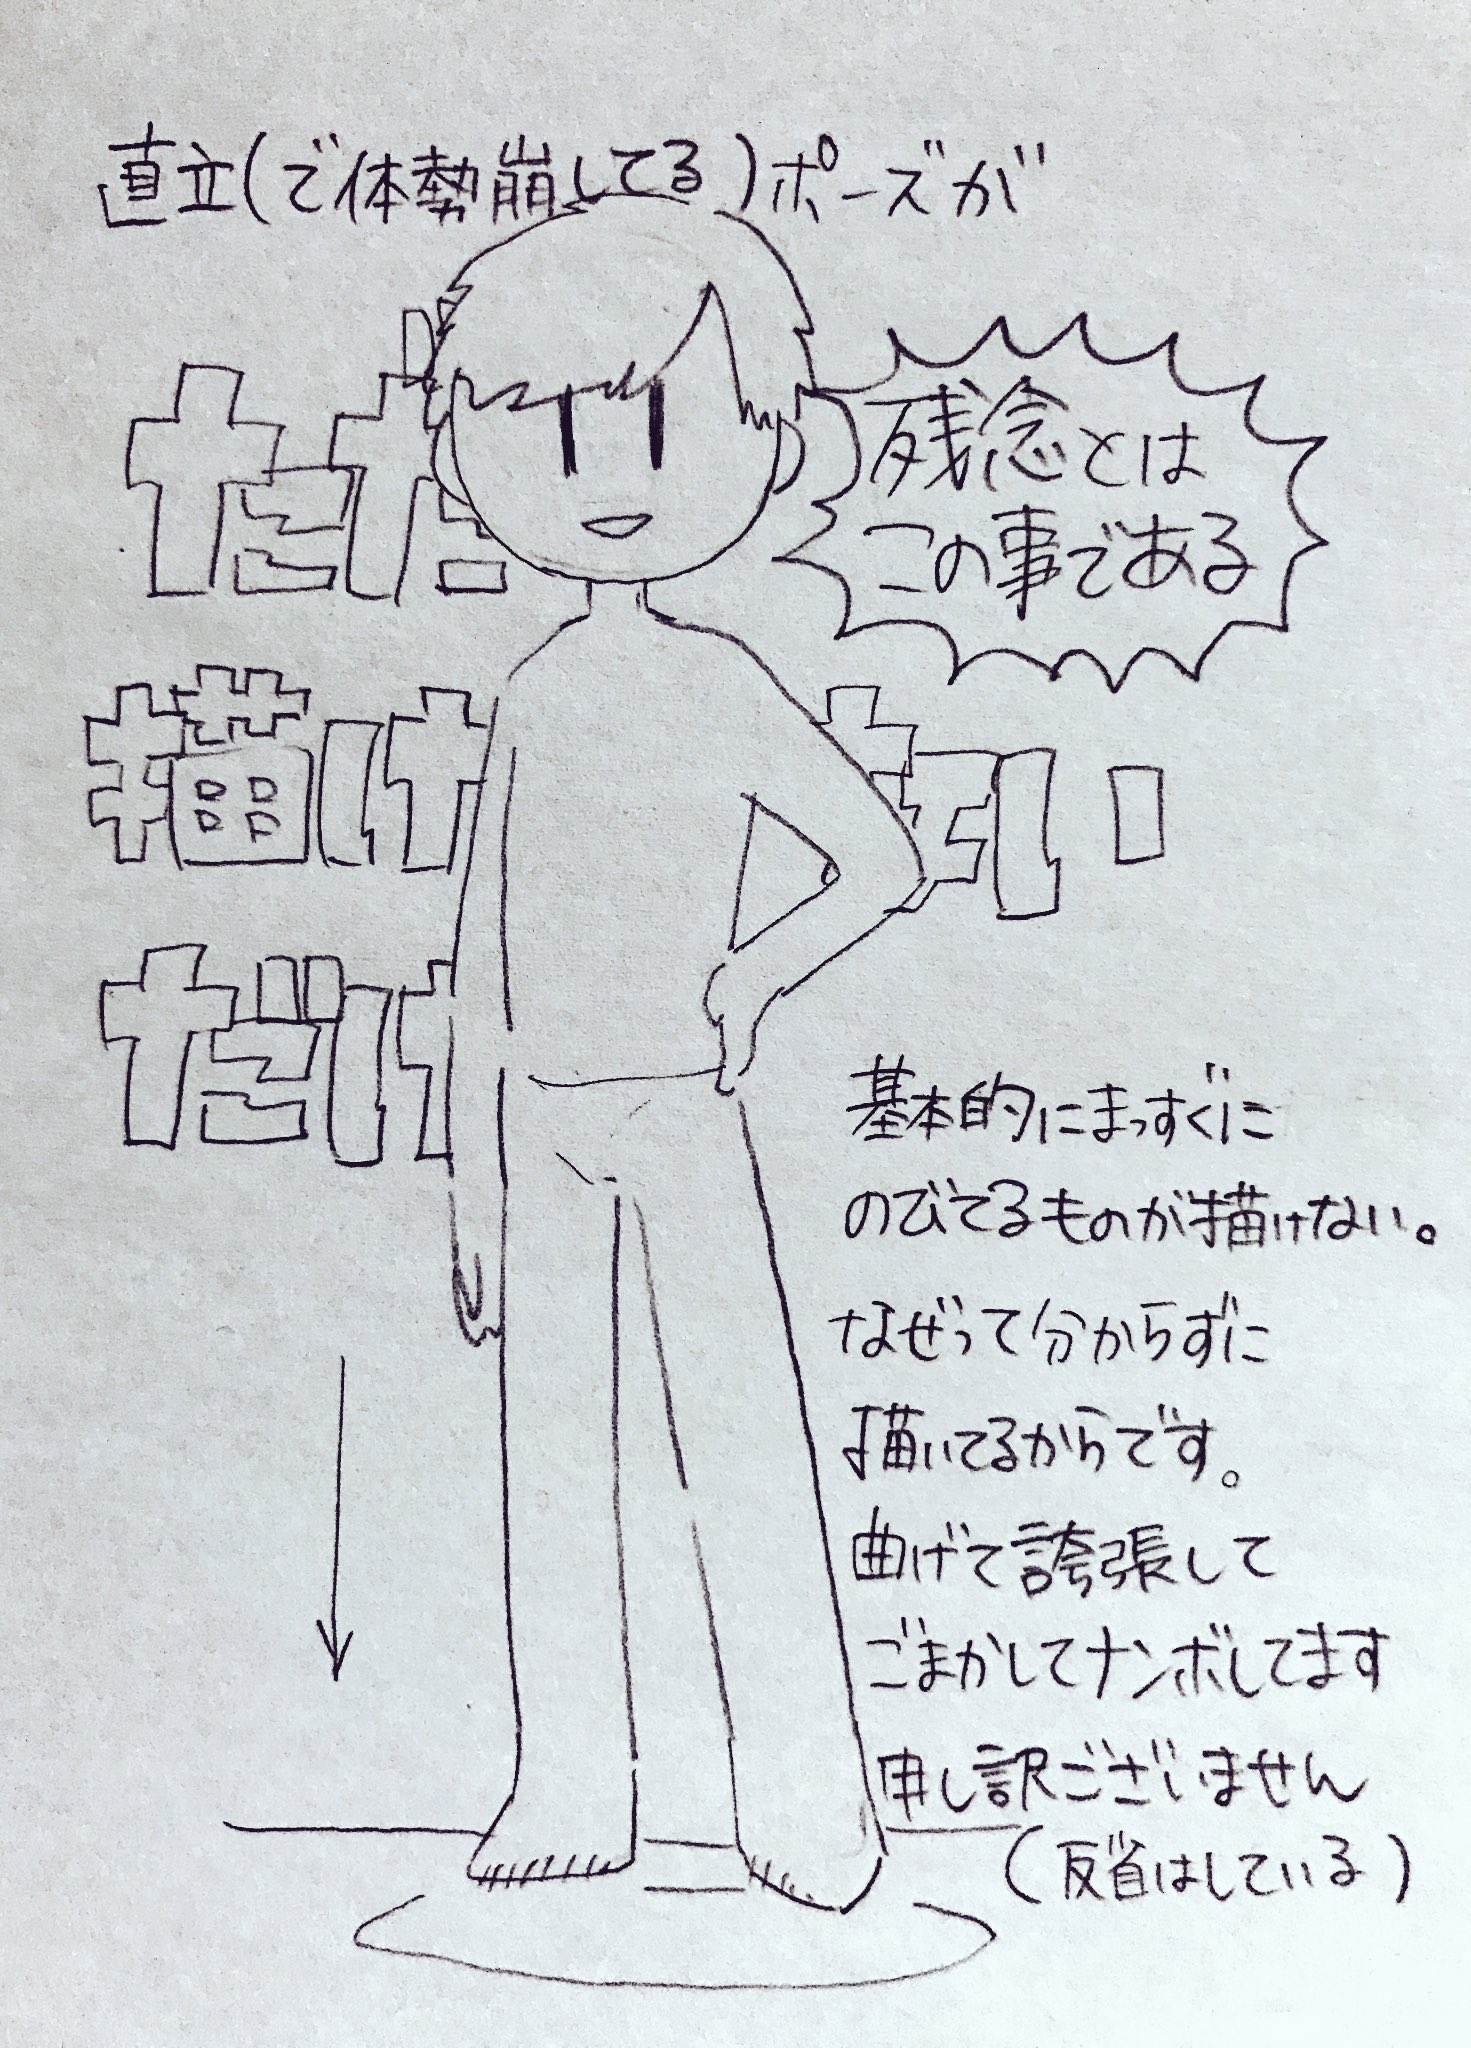 直立(で体勢崩してる)ポーズが
ただ
描けない
だけ
残念とは
この事である
基本的にまっすぐに
のびてるものが描けない。
なぜって分からずに
描いてるからです。
曲げて誇張して
ごまかしてナンボしてます
申し訳ございません
(反省はしている)